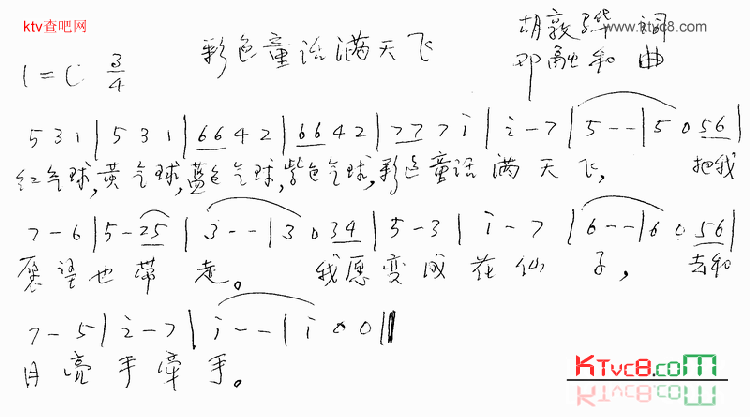 ktv查吧网
www.ktvc8.com
彩色童话满天飞
胡敦骅 词
1=C 3/4
邓融和 曲
5 3 1 | 5 3 1 | 6 6 4 2 | 6 6 4 2 | 7 7 7 i | i - 7 | 5 - - | 5 0 5 6 |
红气球,黄气球,蓝色气球,紫色气球,彩色童话满天飞, 把我
7 - 6 | 5 - 2 5 | 3 - - | 3 0 3 4 | 5 - 3 | i - 7 | 6 - - | 6 0 5 6 |
愿望也带走。 我愿变成花仙子, 去和
7 - 5 | 2 - 7 | i - - | i 0 0 ||
月亮手牵手。
KTVC8.COM